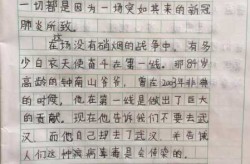 一切都是因为一场突如其来的新冠
肺炎所致。
在这没有硝烟的战争中，有多
少白衣天使奋斗在第一线。那84岁
高龄的钟南山爷爷，曾在2003年非典
的时候，他在第一线是做出了巨大
的贡献。现在他告诉我们不要去武
汉，而他自己却去了武汉，并告诉
人们这种疾病毒是会传染的。